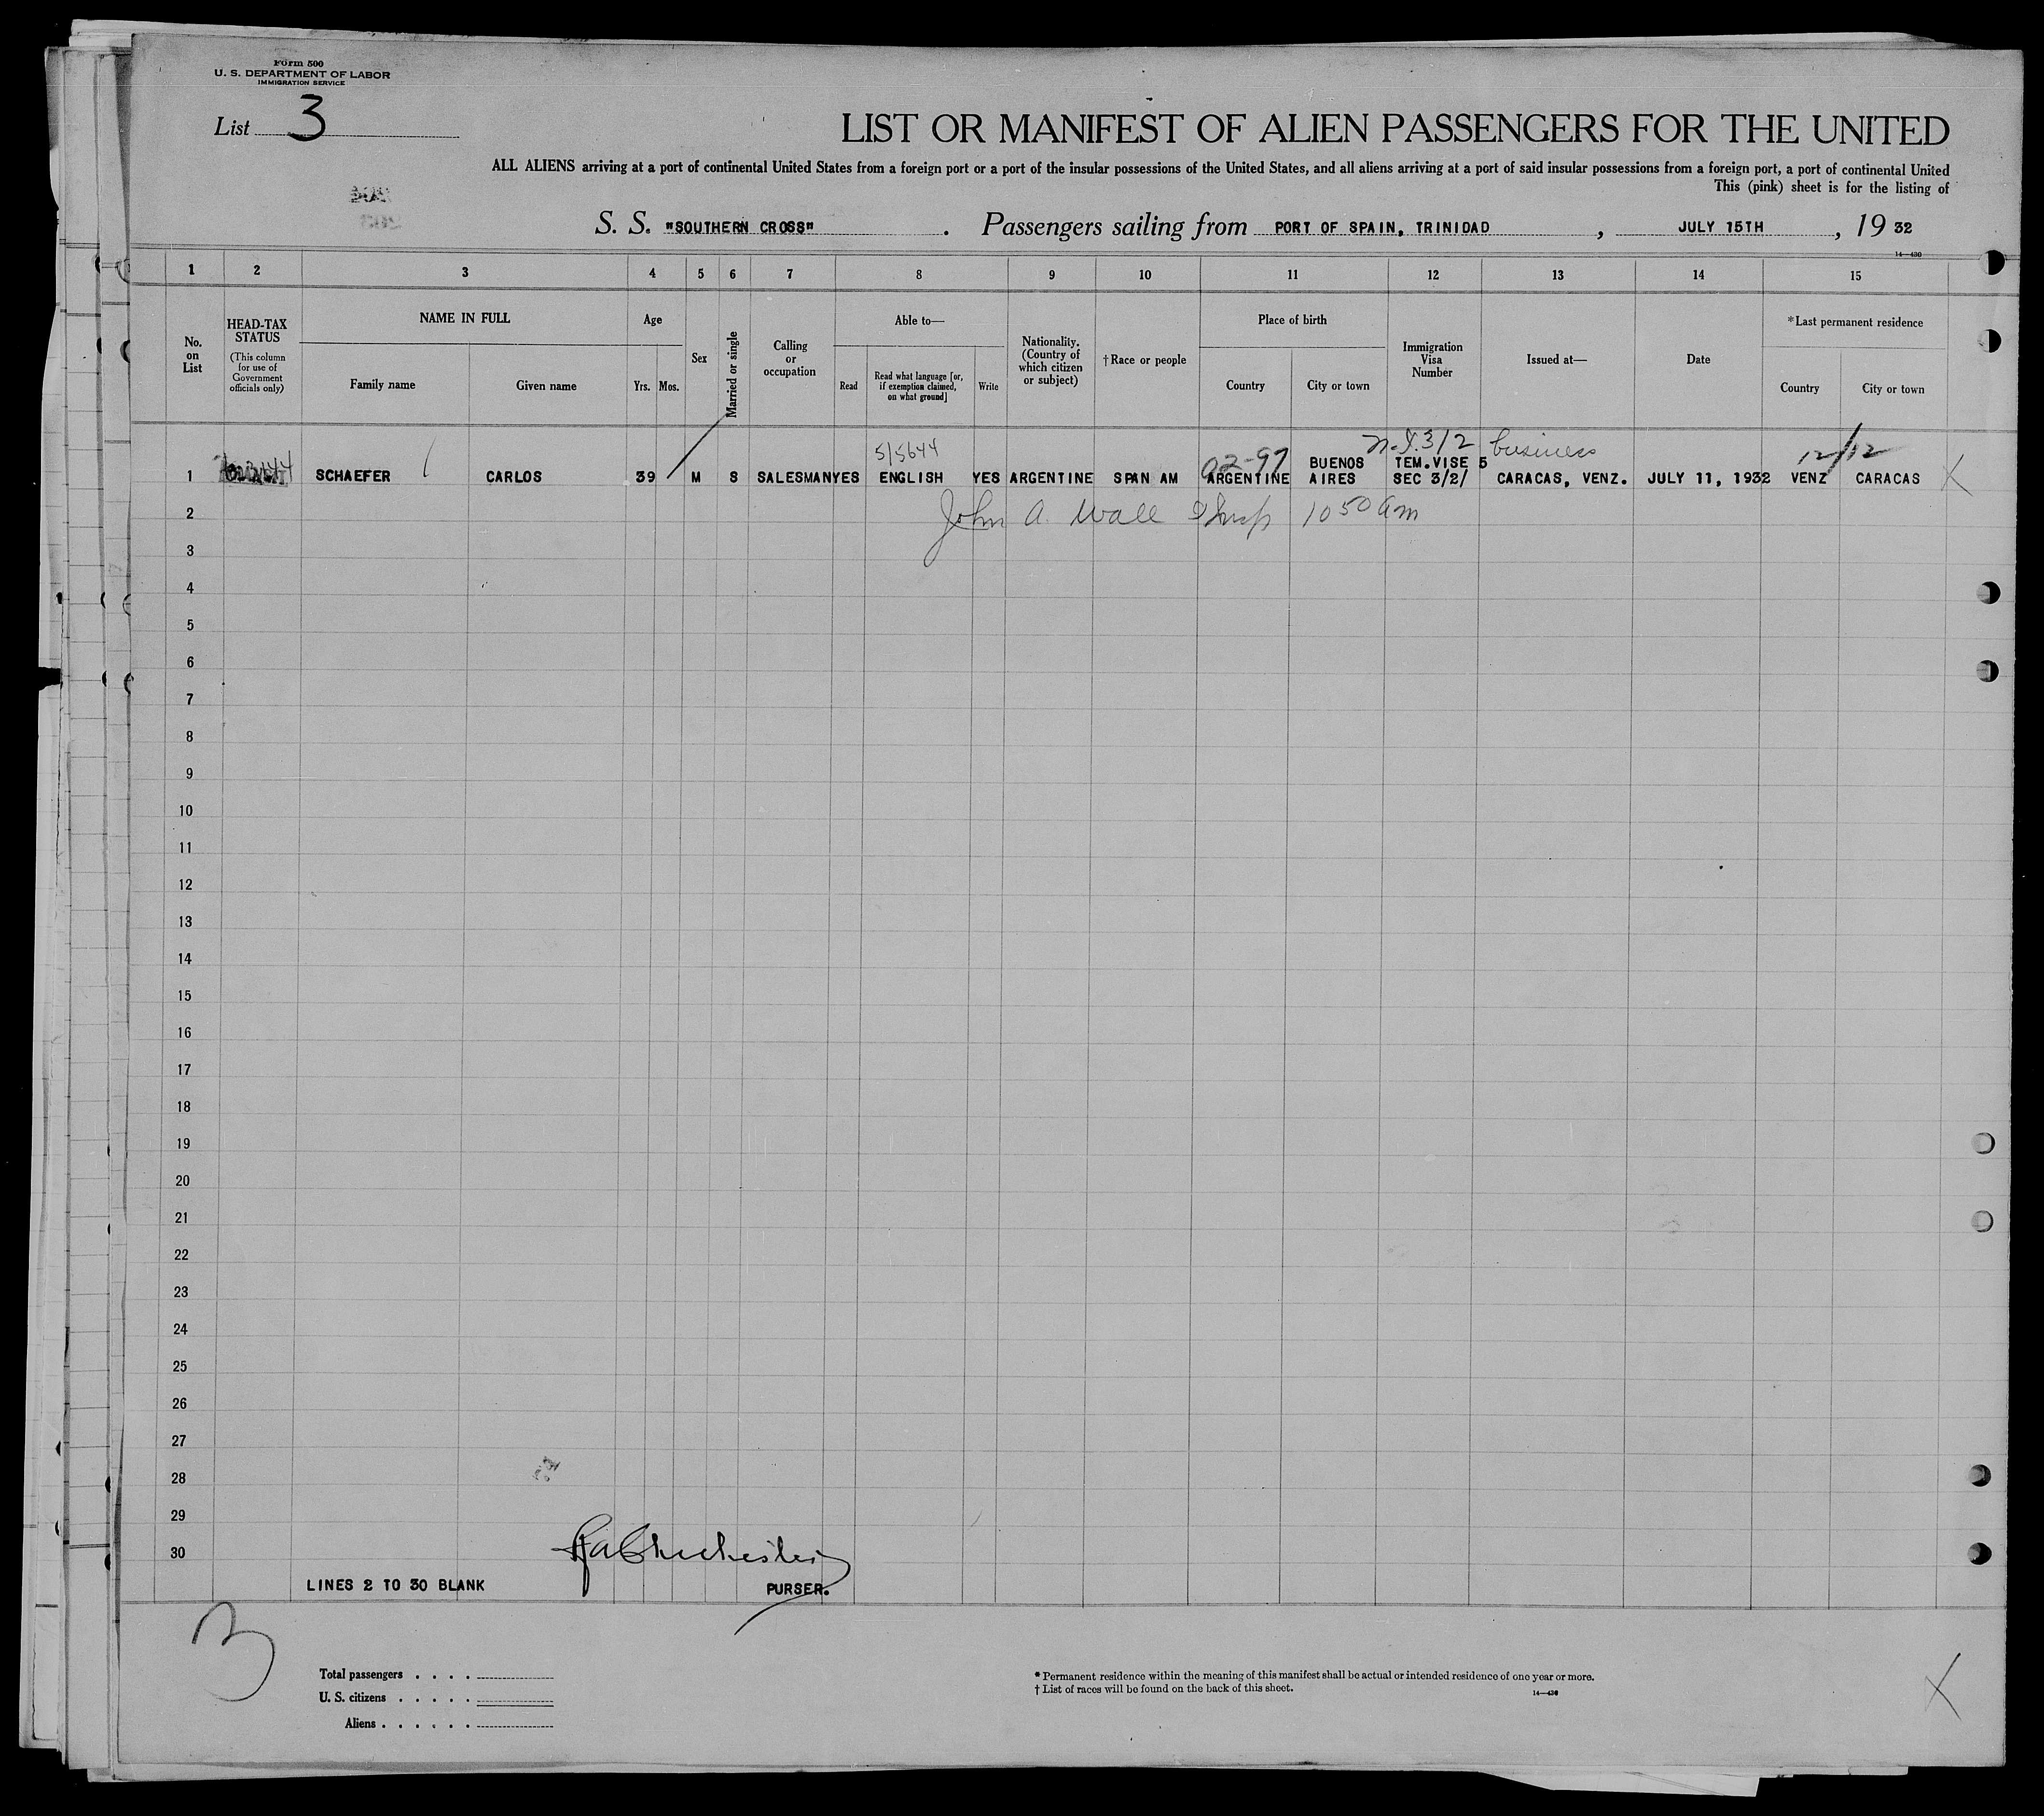 Form 500
U. S. DEPARTMENT OF LABOR
IMMIGRATION SERVICE
List 3
LIST OR MANIFEST OF ALIEN PASSENGERS FOR THE UNITED
ALL ALIENS arriving at a port of continental United States from a foreign port or a port of the insular possessions of the United States, and all aliens arriving at a port of said insular possessions from a foreign port, a port of continental United
This (pink) sheet is for the listing of
S. S. "SOUTHERN CROSS" . Passengers sailing from PORT OF SPAIN, TRINIDAD , JULY 15TH , 19 32
14—430
1 2 3 4 5 6 7 8 9 10 11 12 13 14 15
No. on List
HEAD-TAX STATUS
(This column for use of Government officials only)
NAME IN FULL
Family name
Given name
Age
Yrs.
Mos.
Sex
Married or single
Calling or occupation
Able to—
Read
Read what language [or, if exemption claimed, on what ground]
Write
Nationality. (Country of which citizen or subject)
†Race or people
Place of birth
Country
City or town
Immigration Visa Number
Issued at—
Date
*Last permanent residence
Country
City or town
5/5644
N.I. 3/2 business
02-97
12/12
BUENOS TEM.VISE 5
1 SCHAEFER CARLOS 39 M S SALESMAN YES ENGLISH YES ARGENTINE SPAN AM ARGENTINE AIRES SEC 3/2/ CARACAS, VENZ. JULY 11, 1932 VENZ CARACAS X
2 John A. Wall 10 50 am
3
4
5
6
7
8
9
10
11
12
13
14
15
16
17
18
19
20
21
22
23
24
25
26
27
28
29
30
LINES 2 TO 30 BLANK
PURSER.
3
Total passengers . . . .
U. S. citizens . . . . .
Aliens . . . . . .
* Permanent residence within the meaning of this manifest shall be actual or intended residence of one year or more.
† List of races will be found on the back of this sheet.
14—430
X